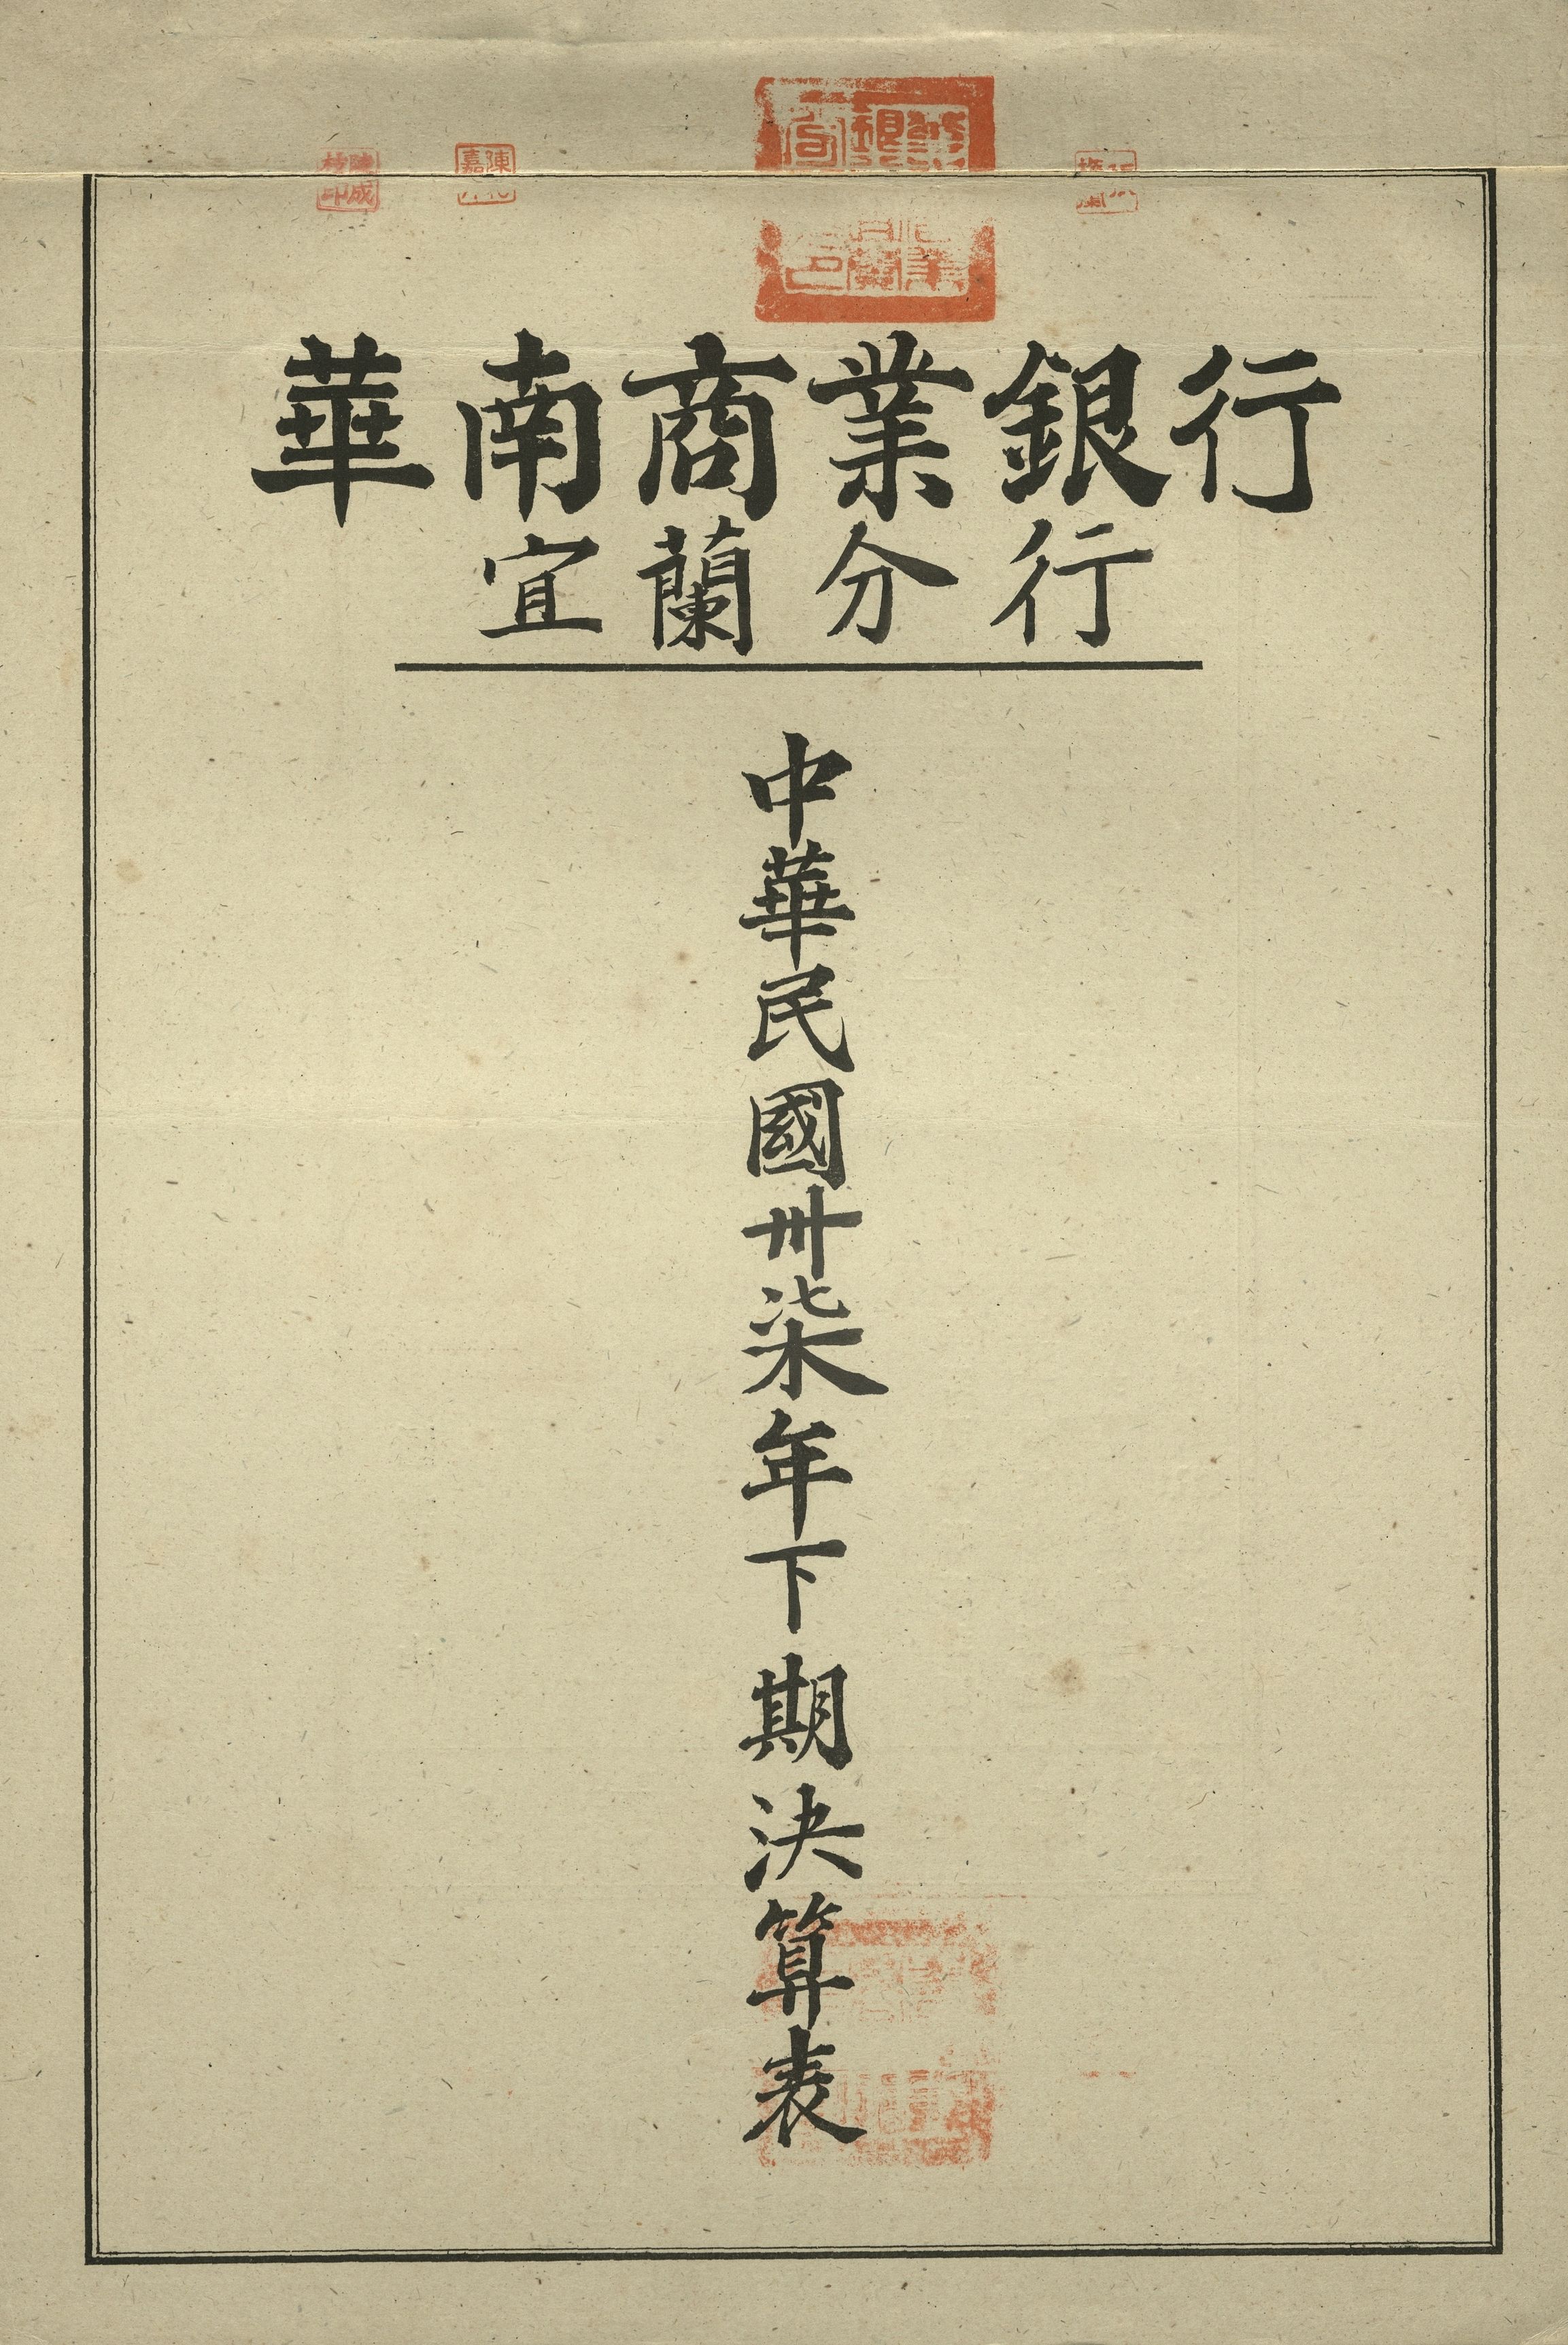 華南商業銀行
宜蘭分行
中華民國卅柒年下期決算表